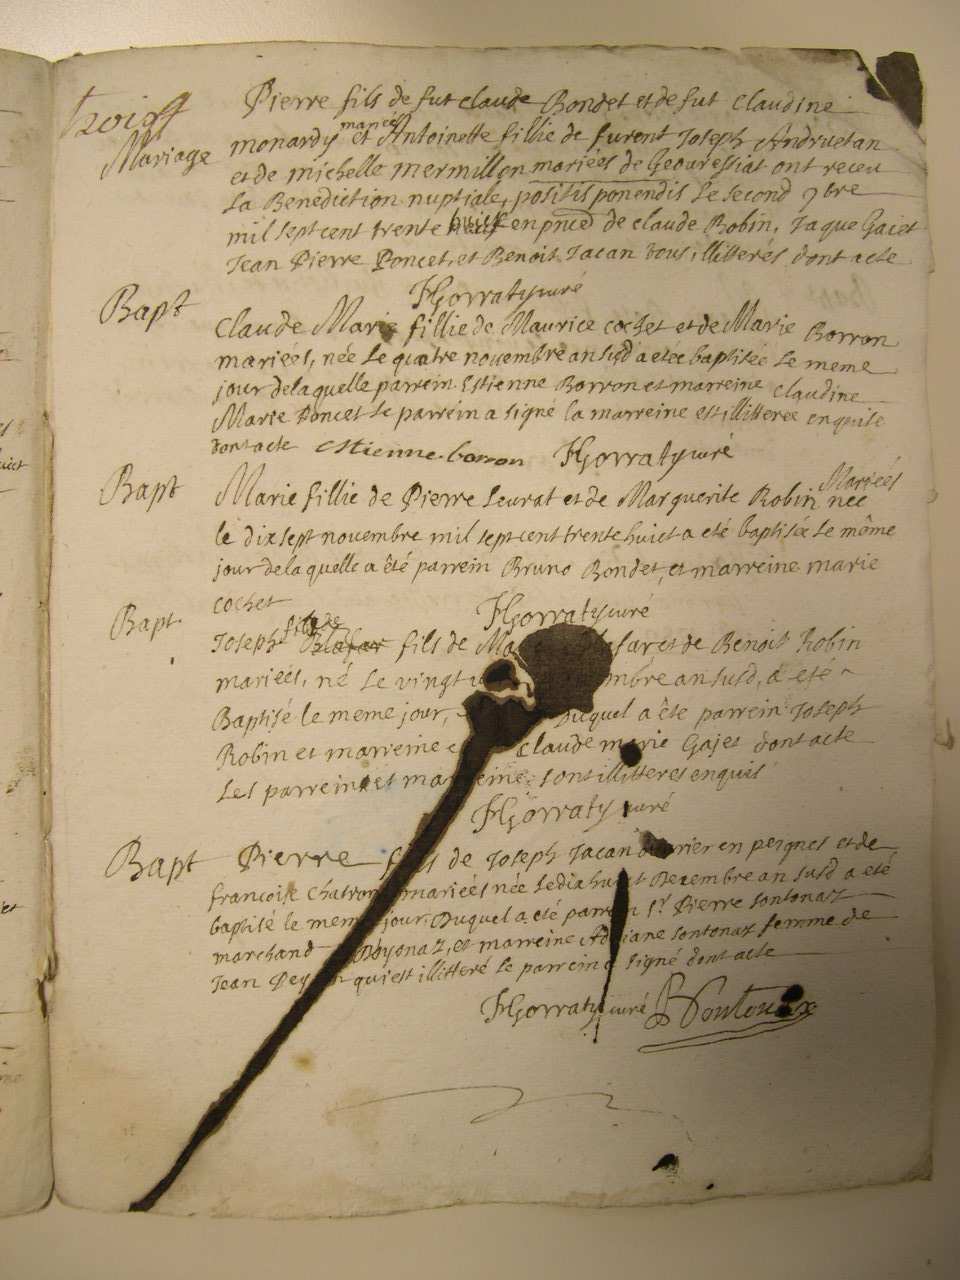 Troisff
Mariage
Pierre fils de fut claude Bondet et de fut Claudine
monardy mance et Antoinette fillie de furent Joseph Andruetan
et de michelle mermillon mariées de Geouressiat ont receu
La Benediction nuptiale, positis ponendis Le second 9bre
mil sept cent trente huict en pnce de claude Robin, Jaque Gajet
Jean Pierre Poncet, et Benoit Jacan tous illitterés dont acte
FGorraty curé
Bapt
Claude Marie fillie de Maurice cochet et de Marie Borron
mariées, née Le quatre novembre an susd a etée baptisée Le meme
jour de laquelle parrein Estienne Borron et marreine Claudine
Marie Poncet Le parrein a signé la marreine est illitteree enquise
dont acte estienne borron FGorraty curé
Bapt
Marie fillie de Pierre Leurat et de Marguerite Robin Mariées née
le dix sept novembre mil sept cent trente huict a eté baptisée Le même
jour de laquelle a êté parrein Bruno Bondet, et marreine marie
cochet FGorraty curé
Bapt
Joseph fils de fils de et de Benoit Robin
mariées, né Le vingt mbre an susd, a eté
Baptisé le meme jour, Duquel a ête parrein Joseph
Robin et marreine Claude marie Gajet dont acte
Les parrein et marreine sont illitteres enquis
FGorraty curé
Bapt
Pierre fils de Joseph Jacan ouvrier en peignes et de
francoise Chatron mariées née Le dix huict Decembre an susd a eté
baptisé le meme jour Duquel a eté parrein Sr Pierre Sontonax
marchand Doyonaz, et marreine Adriane Sontonax femme de
Jean qui est illitteré Le parrein a signé dont acte
FGorraty curé PSontonax